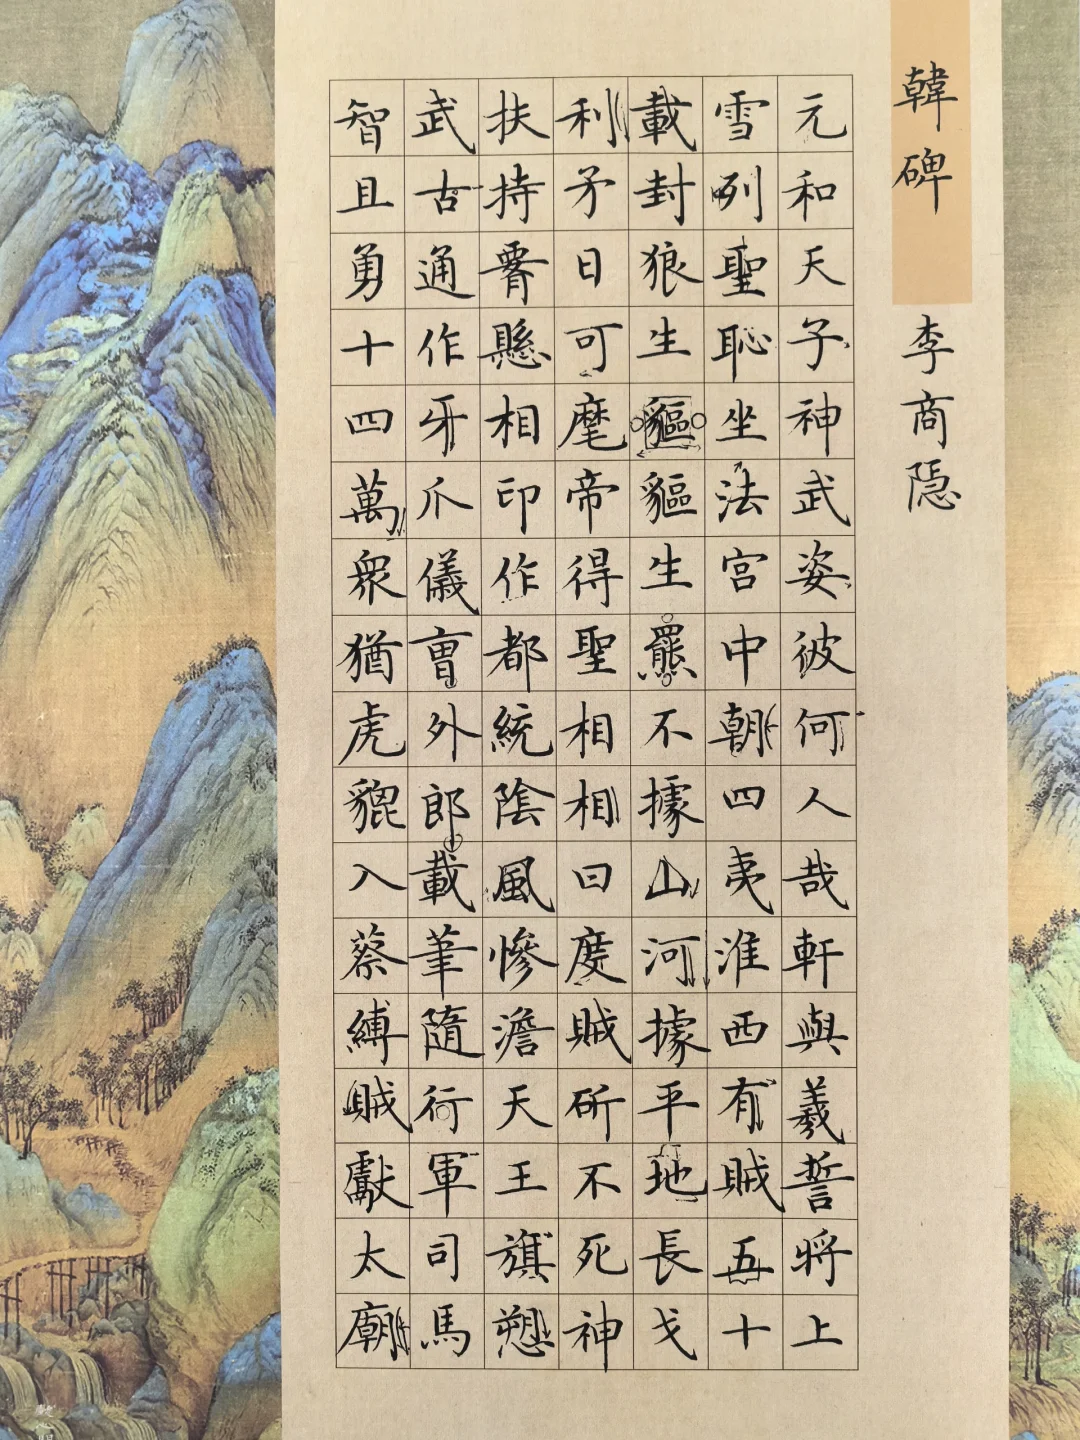 韓碑
李商隐
元和天子神武姿彼何人哉軒與羲誓將上
雪列聖恥坐法宫中朝四夷淮西有賊五十
載封狼生貙貙生羆不據山河據平地長戈
利矛日可麾帝得聖相相曰度賊斫不死神
扶持懸相印作都統陰風慘澹天王旗愬
武古通作牙爪儀曹外郎載筆隨行軍司馬
智且勇十四萬眾猶虎貔入蔡縛賊獻太廟